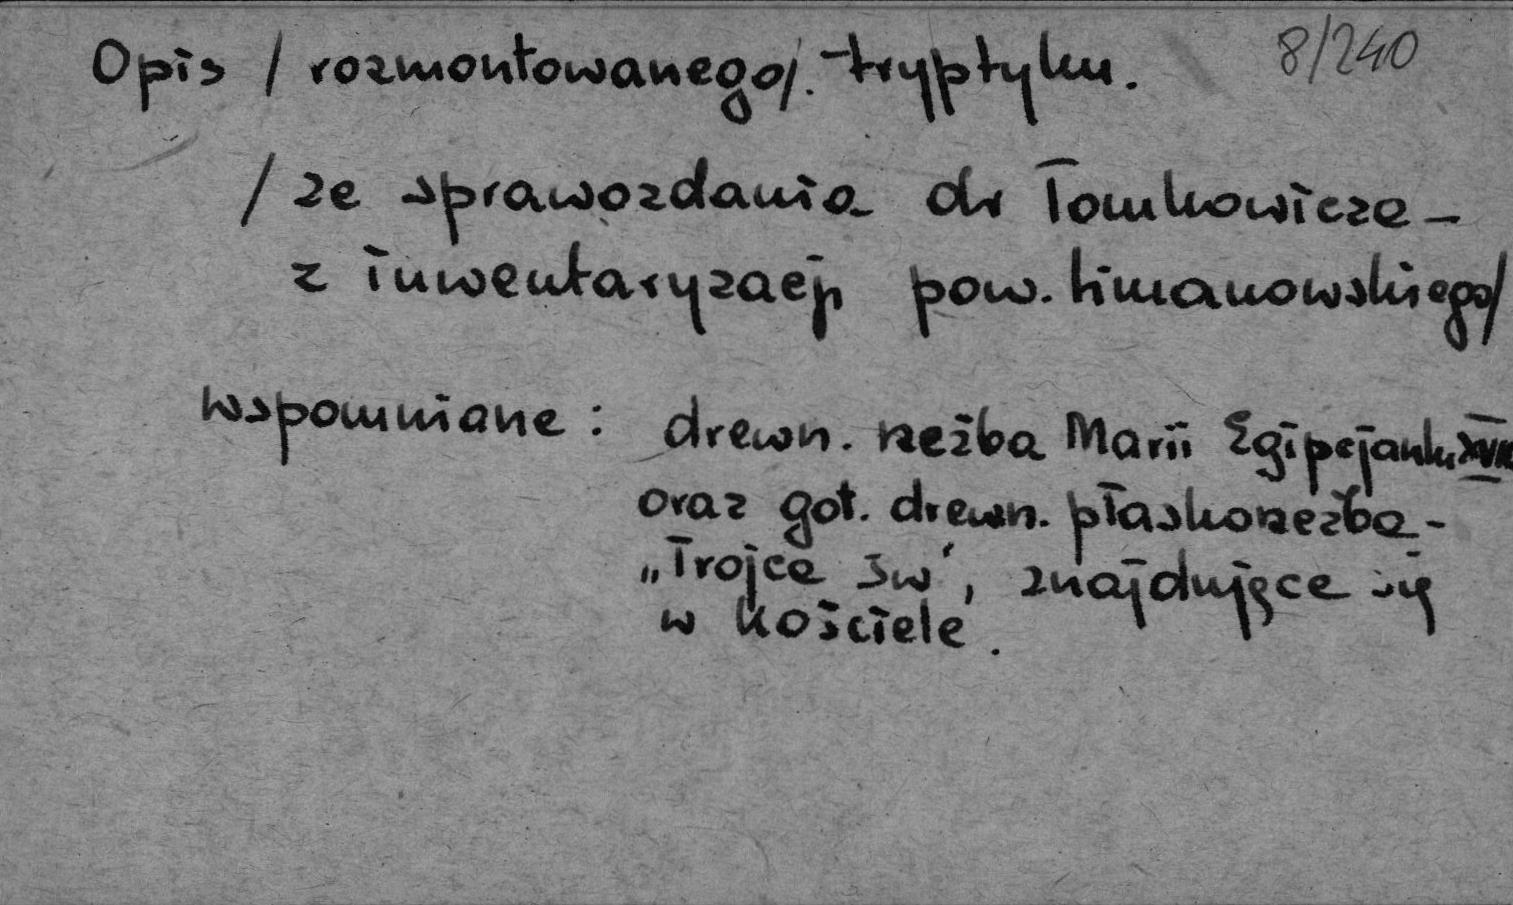 Opis / rozmontowanego/. tryptyku. 8/240
/ ze sprawozdania dr Tomkowicza –
z inwentaryzacji pow. limanowskiego/
wspomniane : drewn. rzeźba Marii Egipcjanki XVII
oraz got. drewn. płaskorzeźba –
„Trojca św", znajdujące się
w kościele .